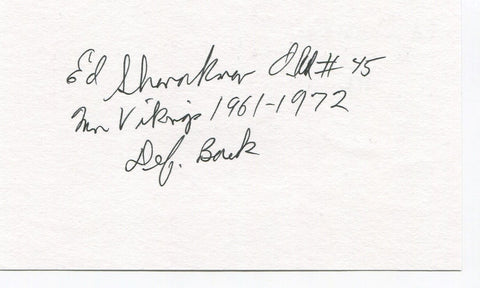 Ed Sharockman Old # 45
Mn Vikings 1961-1972
Def. Back